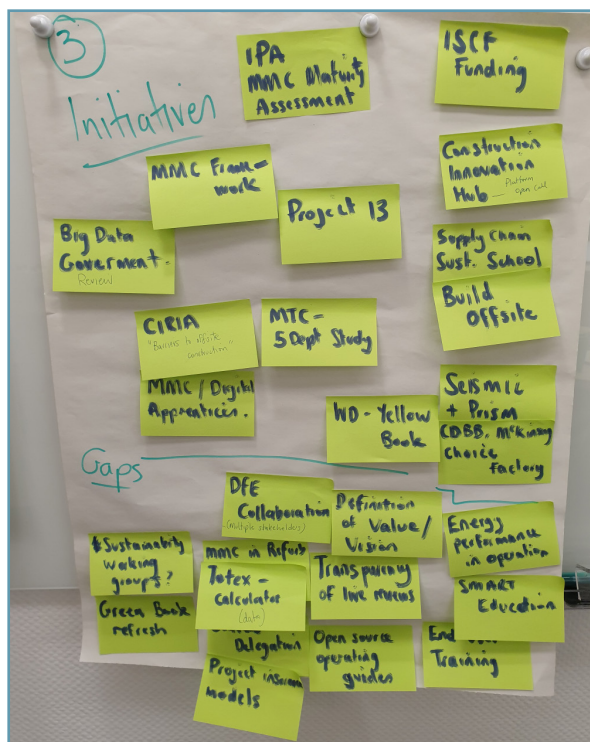 3
Initiatives
IPA
MMC Maturity
Assessment
ISCF
Funding
MMC Frame-
work
Project 13
Construction
Innovation
Hub
Platform
open call
Big Data
Goverment -
Review
Supply Chain
Sust. School
Build
Offsite
CIRIA
"Barriers to offsite
construction"
MTC -
5 Dept Study
MMC / Digital
Apprentices.
WD - Yellow
Book
Seismic
+ Prism
CDBB, McKinsey
Choice
Factory
Gaps
DfE
Collaboration
(multiple stakeholders)
Definition
of Value /
Vision
Energy
performance
in operation
#Sustainability
working
groups?
MMC in Refurb
Totex -
calculator
(data)
Transparency
of live
SMART
Education
Green Book
refresh
Delegation
Open source
operating
guides
End
Training
Project
models